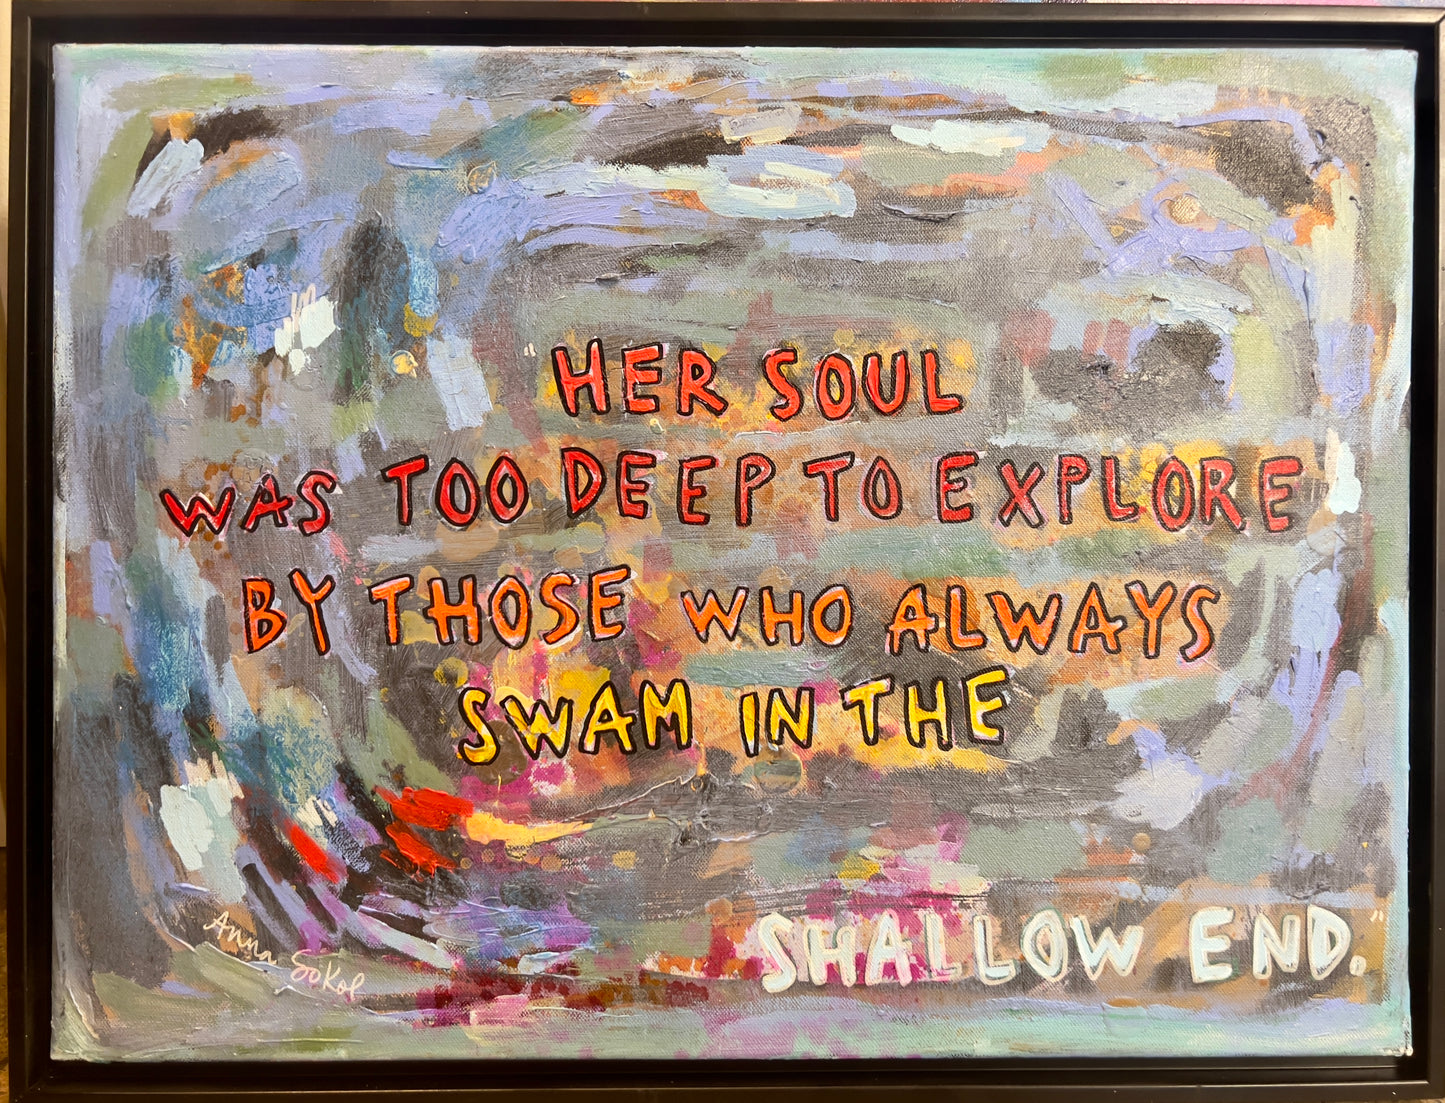 "HER SOUL
WAS TOO DEEP TO EXPLORE
BY THOSE WHO ALWAYS
SWAM IN THE
SHALLOW END."
Anna Sokol